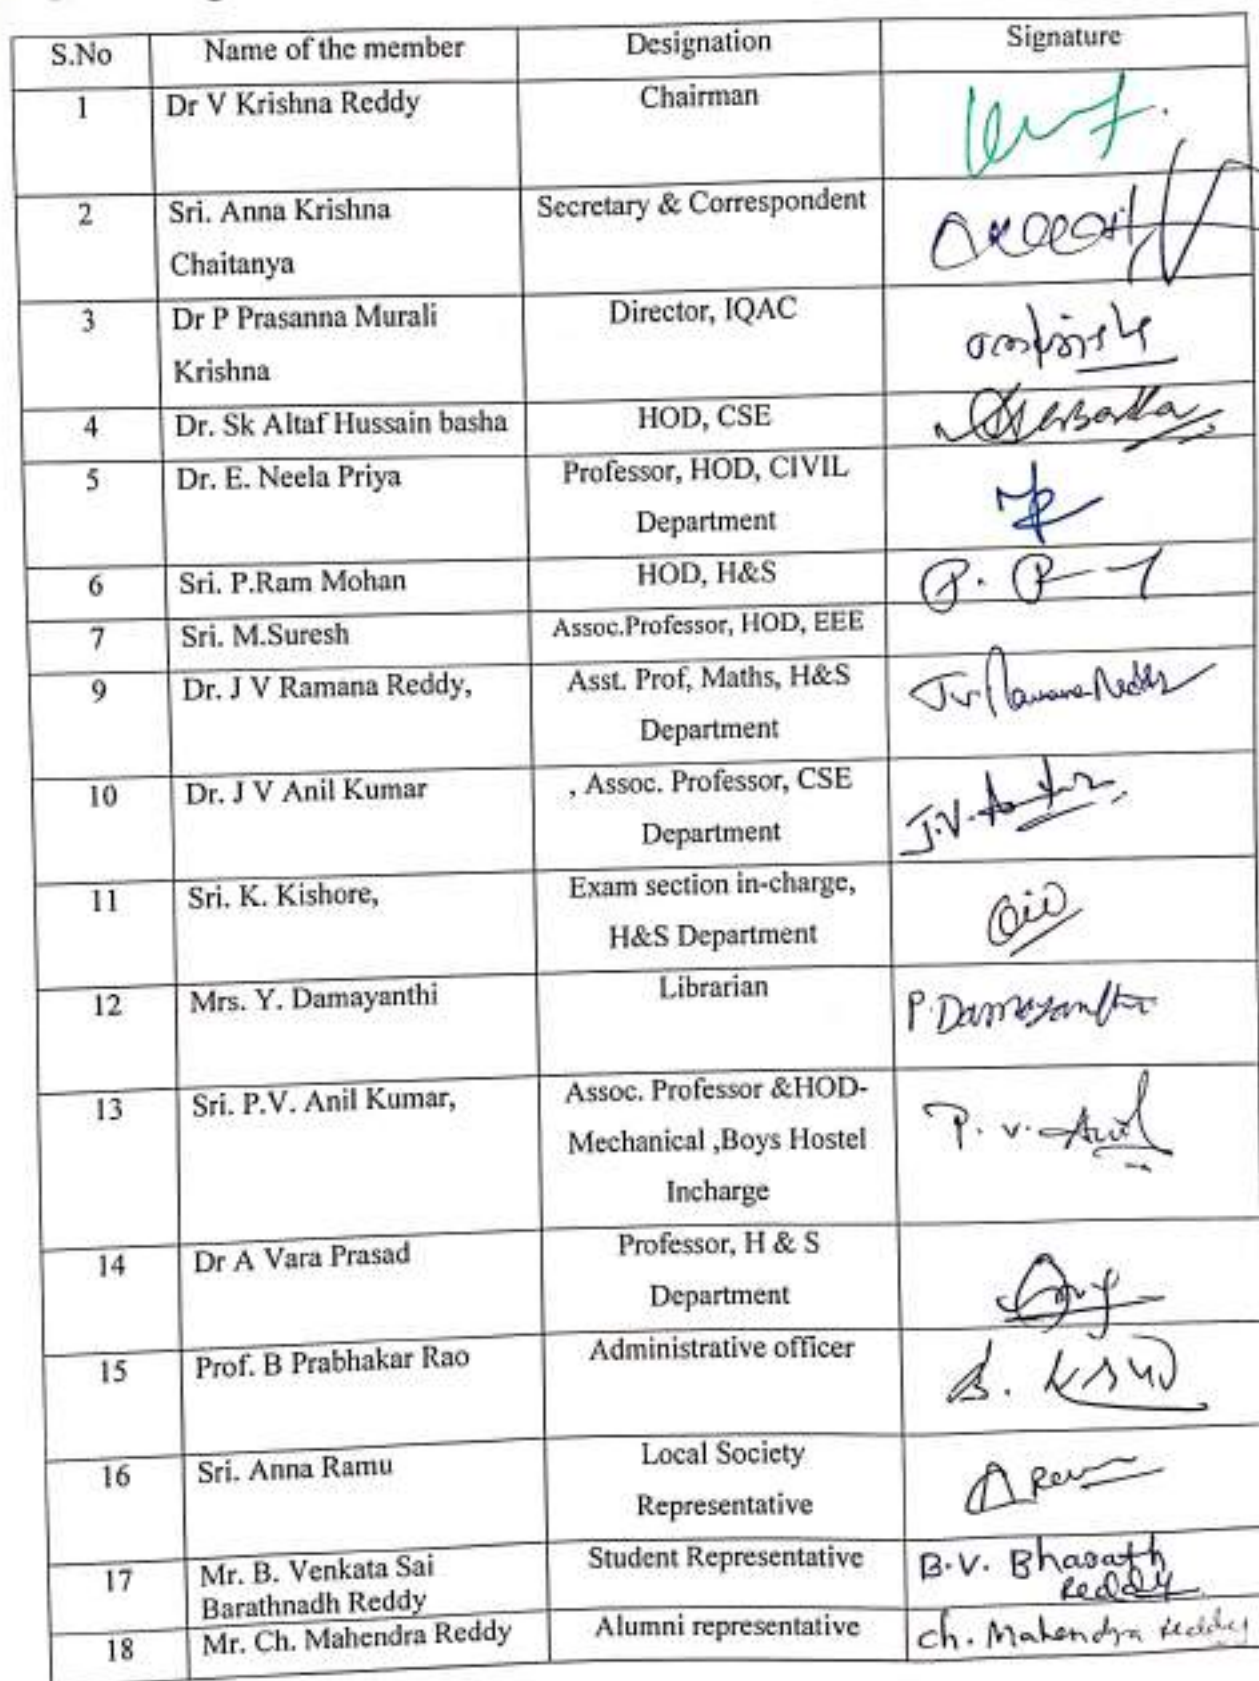 S.No Name of the member Designation Signature
1 Dr V Krishna Reddy Chairman
2 Sri. Anna Krishna Secretary & Correspondent
Chaitanya
3 Dr P Prasanna Murali Director, IQAC
Krishna
4 Dr. Sk Altaf Hussain basha HOD, CSE
5 Dr. E. Neela Priya Professor, HOD, CIVIL
Department
6 Sri. P.Ram Mohan HOD, H&S
7 Sri. M.Suresh Assoc.Professor, HOD, EEE
9 Dr. J V Ramana Reddy, Asst. Prof, Maths, H&S
Department
10 Dr. J V Anil Kumar , Assoc. Professor, CSE
Department
11 Sri. K. Kishore, Exam section in-charge,
H&S Department
12 Mrs. Y. Damayanthi Librarian P.Damayanthi
13 Sri. P.V. Anil Kumar, Assoc. Professor &HOD- P. v. Anil
Mechanical ,Boys Hostel
Incharge
14 Dr A Vara Prasad Professor, H & S
Department
15 Prof. B Prabhakar Rao Administrative officer
16 Sri. Anna Ramu Local Society
Representative
17 Mr. B. Venkata Sai Student Representative B.V. Bharath
Barathnadh Reddy Reddy
18 Mr. Ch. Mahendra Reddy Alumni representative ch. Mahendra Reddy